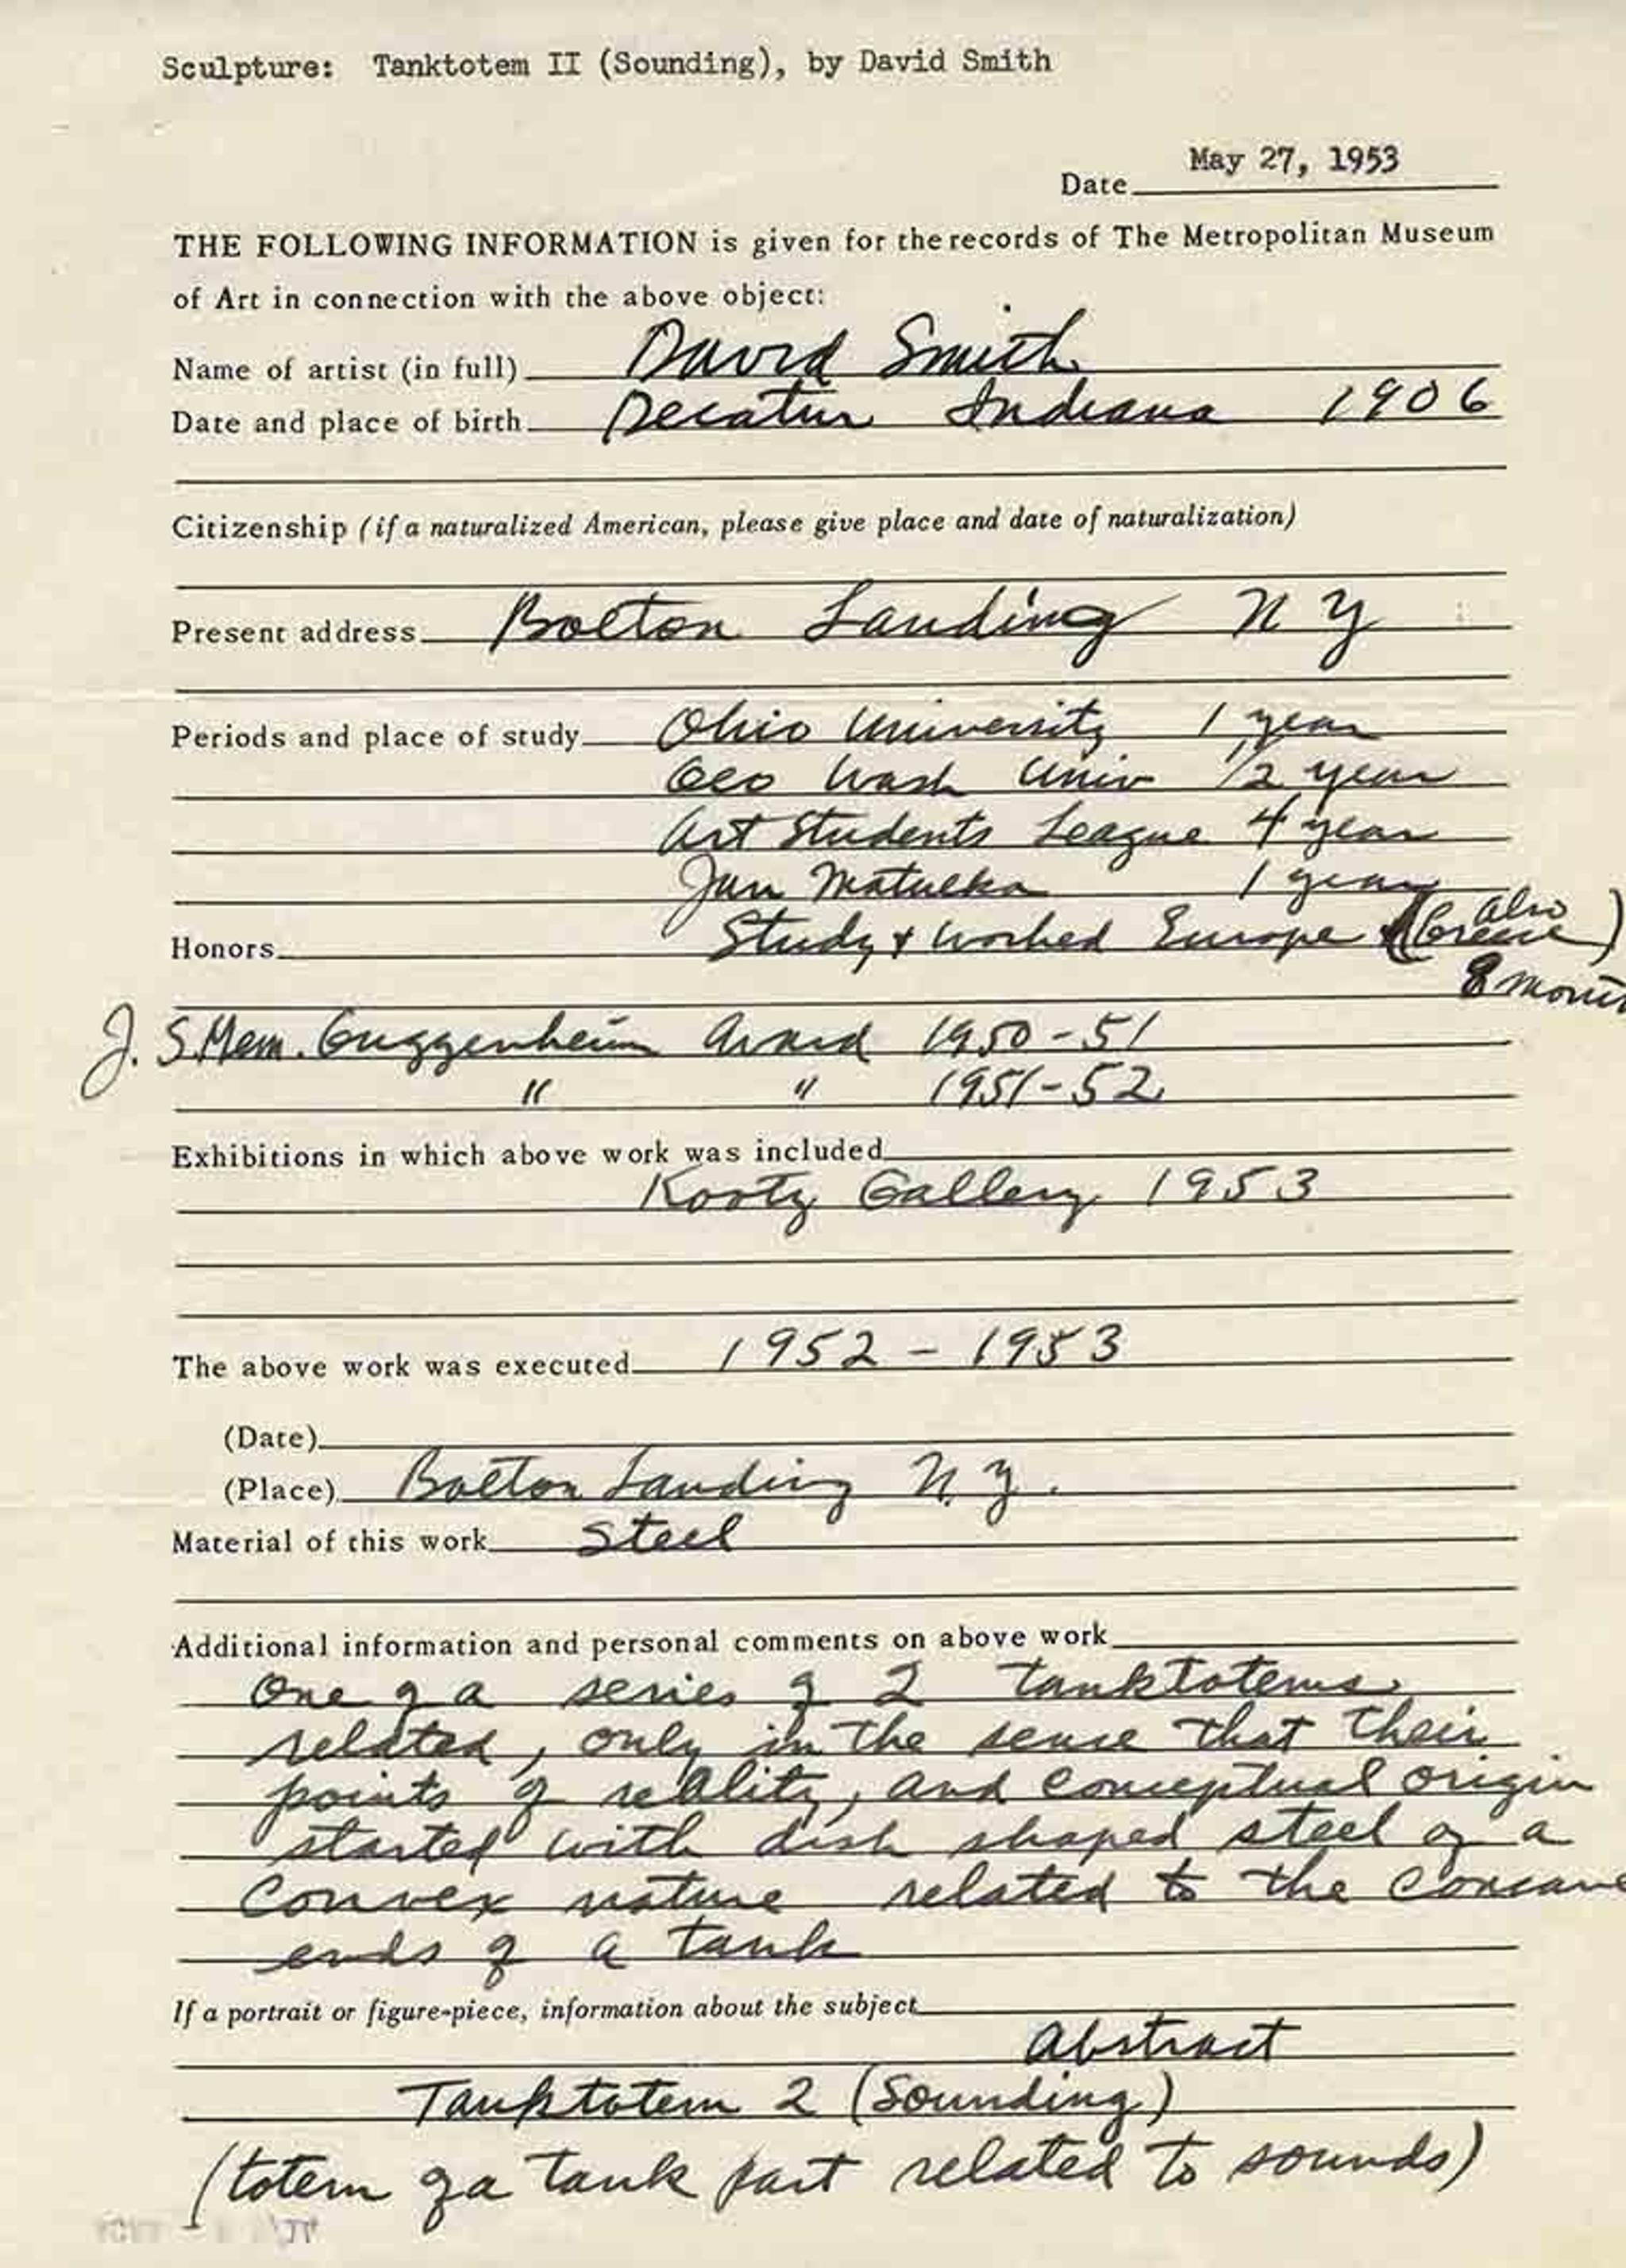 Sculpture: Tanktotem II (Sounding), by David Smith
May 27, 1953
Date
THE FOLLOWING INFORMATION is given for the records of The Metropolitan Museum
of Art in connection with the above object:
Name of artist (in full) David Smith
Date and place of birth Decatur Indiana 1906
Citizenship (if a naturalized American, please give place and date of naturalization)
Present address Bolton Landing N Y
Periods and place of study Ohio University 1 year
Geo Wash Univ 1/2 year
Art Students League 4 year
Jan Matulka 1 year
Honors Study & worked Europe (also Greece)
8 month
J. S. Mem. Guggenheim Award 1950-51
" " 1951-52
Exhibitions in which above work was included
Kootz Gallery 1953
The above work was executed 1952 - 1953
(Date)
(Place) Bolton Landing N.Y.
Material of this work Steel
Additional information and personal comments on above work
One of a series of 2 tanktotems
related, only in the sense that their
points of reality, and conceptual origin
started with dish shaped steel of a
convex nature related to the concave
ends of a tank
If a portrait or figure-piece, information about the subject
Abstract
Tanktotem 2 (Sounding)
(totem of a tank part related to sounds)